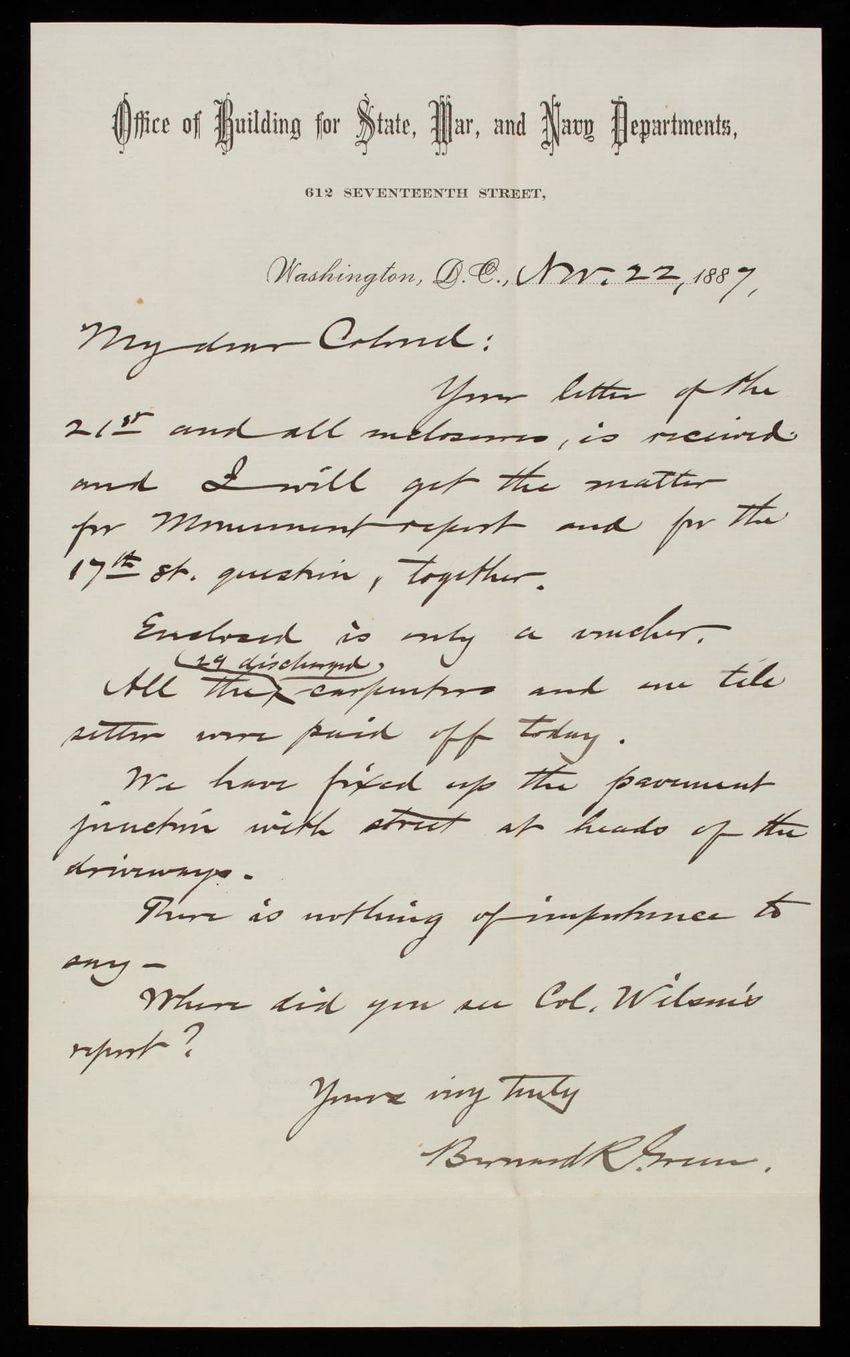 Office of Building for State, War, and Navy Departments,
612 SEVENTEENTH STREET,
Washington, D.C., Nov. 22, 1887,
My dear Colonel:
Your letter of the
21st and all enclosures, is received
and I will get the matter
for Monument report and for the
17th St. question, together.
Enclosed is only a voucher.
29 discharged
All the carpenters and one tile
setter were paid off today.
We have fixed up the pavement
junction with street at heads of the
driveways.
There is nothing of importance to
say—
Where did you see Col. Wilson's
report?
Yours very truly
Bernard R. Green.